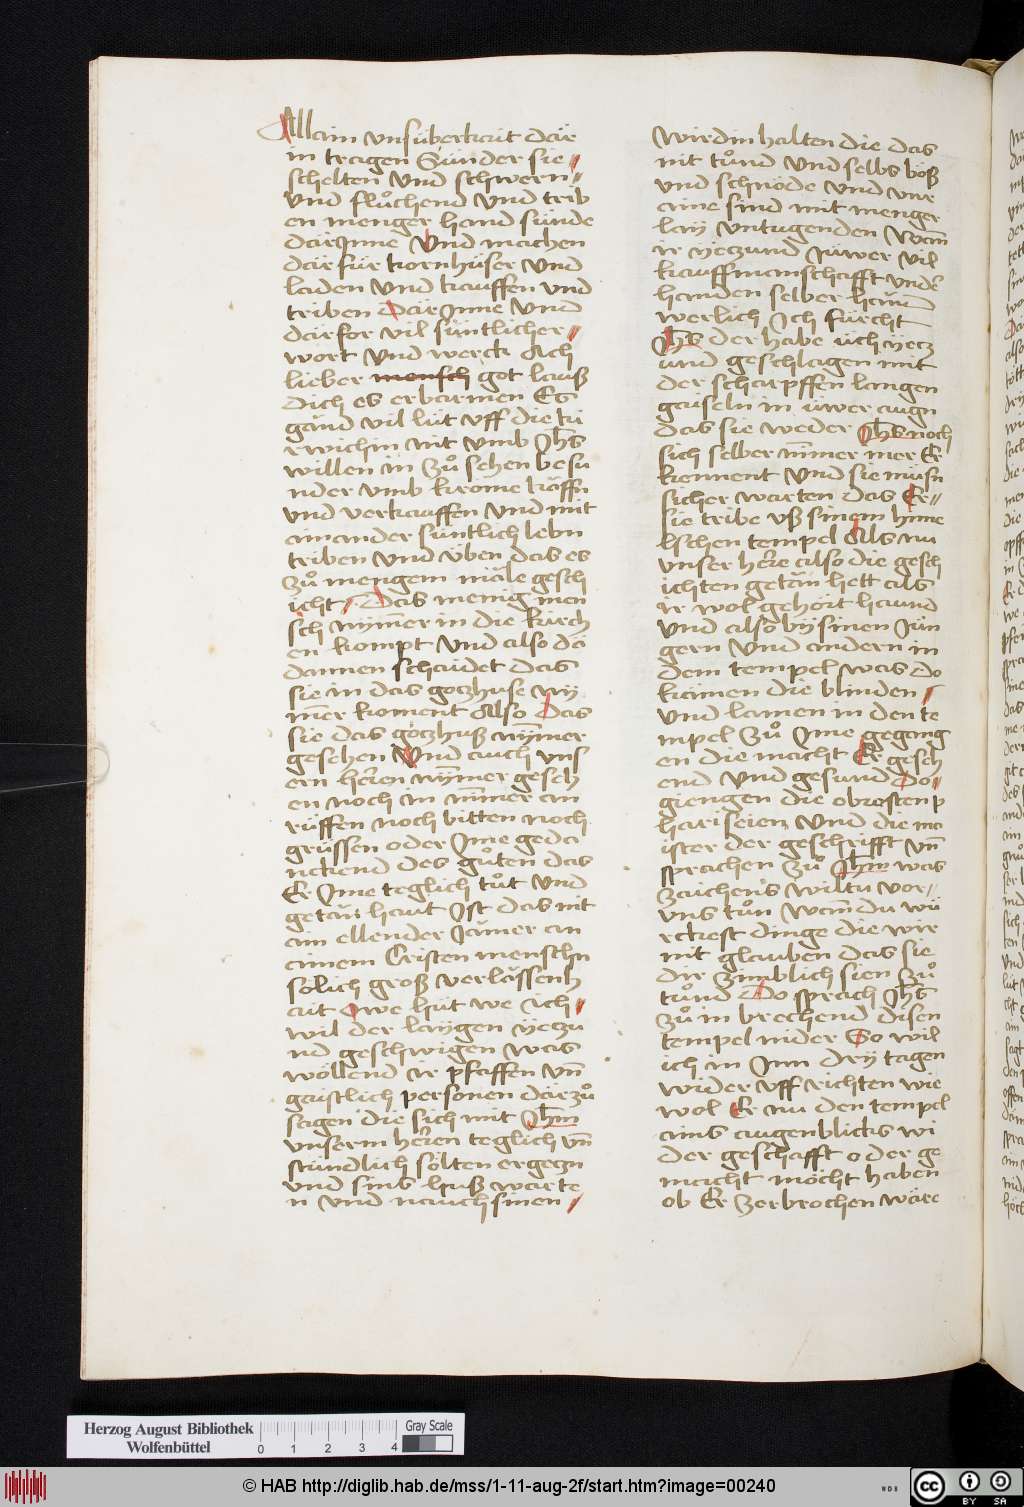 Allain vnsüberkait där
in tragen Sünder sie
schelten vnd schwern
vnd fluͦchend vnd trib
en menger hand sünde
där Inne vnd machen
därfür kornhüser vnd
laden vnd kauffen vnd
triben Där Inne vnd
därfor vil süntlicher
wort vnd werck Ach
lieber mensch got lauß
dich es erbarmen Es
gänd vil lüt vff die ki
rwichin nit vmb Jhs
willen in zuͦ sehen besu
nder vmb kröme käffn
vnd verkauffen vnd mit
ainander süntlich lebn
triben vnd üben das es
zuͦ mengem mäle gesch
icht Das menig men
sch nym̄er in die kirch
en kompt vnd also dä
dannen schaidet das
sie in das goczhuse ny
m̄er koment Also Das
sie das goczhuß nym̄er
gesehen Vnd auch vns
ern herren nym̄er geseh
en noch in nim̄er an
rüffen noch bitten noch
grüssen oder Ime geda
nckend des guͦten das
Er Ime teglich tuͦt vnd
getän haut Ist das nit
ain ellender Jämer an
ainem Cristen menschn
solich groß verlässenh
ait Owe hüt we ich
wil der laygen yeczu
nd geschwigen was
wöllend ir pfaffen vn̄
gaistlich personen därzuͦ
sagen die sich mit Jhm
vnserm herren teglich vn̄
stündlich sölten ergeczn
vnd sins huß warte
n vnd nauch sinen
wirdin halten die das
nit tuͦnd vnd selbs böß
vnd schnöde vnd vnr
aine sind mit menger
lay vntugenden Wan̄
ir yeczund Jüwer vil
kauffmanschafft vnder
handen selber haund
werlich Ich fürcht
Jhs der habe üch yecz
und geschlagen mit
der scharpffen langen
gaiseln in üwer augn
das sie weder Jhs noch
sich selber nim̄er mer Er
kennent vnd sie müsn
sicher warten das Er
sie tribe vß sinem hime
lschen tempel Als nu
vnser herre also die gesch
ichten getän hett als
ir wol gehört haund
vnd also by sinen Jün
gern vnd andern in
dem tempel was do
kämen die blinden
vnd lamen in den te
mpel zuͦ Ime gegang
en die macht Er gesch
end vnd gesund Do
giengen die obresten p
hariseien vnd die ma
ister der geschrifft vn̄
sprachen zuͦ Jhm was
zaichens wiltu vor
vns tuͦn Wan̄ du wü
rckest dinge die wir
nit glauben das sie
dir zimblich sien zuͦ
tuͦnd Do sprach Jhs
zuͦ in brechend disen
tempel nider So wil
ich in Inn dry tagen
wider vff richten wie
wol Er nu den tempel
ains augenblicks wi
der geschafft oder ge
macht möcht haben
ob Er zerbrochen wäre
Herzog August Bibliothek
Wolfenbüttel
0 1 2 3 4
Gray Scale
© HAB http://diglib.hab.de/mss/1-11-aug-2f/start.htm?image=00240
cc BY SA